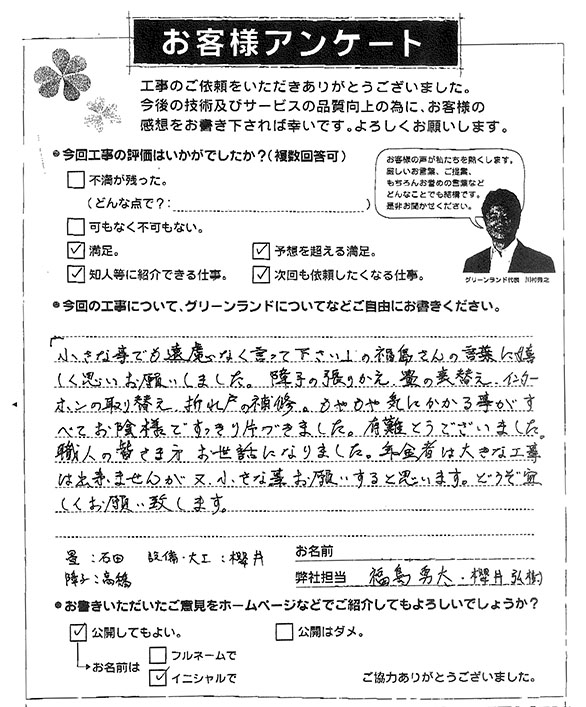 お客様アンケート
工事のご依頼をいただきありがとうございました。
今後の技術及びサービスの品質向上の為に、お客様の
感想をお書き下されば幸いです。よろしくお願いします。
●今回工事の評価はいかがでしたか?(複数回答可)
不満が残った。
(どんな点で?: )
可もなく不可もない。
✓満足。 ✓予想を超える満足。
✓知人等に紹介できる仕事。 ✓次回も依頼したくなる仕事。
お客様の声が私たちを熱くします。
厳しいお言葉、ご提案、
もちろんお誉めの言葉など
どんなことでも結構です。
是非お聞かせください。
グリーンランド代表 川村角之
●今回の工事について、グリーンランドについてなどご自由にお書きください。
「小さな事でも遠慮なく言って下さい」の福島さんの言葉に嬉
しく思いお願いしました。障子の張りかえ、畳の表替え、インター
ホンの取り替え、折れ戸の補修。もやもや気にかかる事がす
べてお陰様ですっきり片づきました。有難とうございました。
職人の皆さま方お世話になりました。年金者は大きな工事
は出来ませんが又、小さな事お願いすると思います。どうぞ宜
しくお願い致します。
畳:石田 設備・大工:櫻井
障子:高橋
お名前
弊社担当 福島勇大・櫻井弘樹
●お書きいただいたご意見をホームページなどでご紹介してもよろしいでしょうか?
✓公開してもよい。 公開はダメ。
お名前は フルネームで
✓イニシャルで
ご協力ありがとうございました。